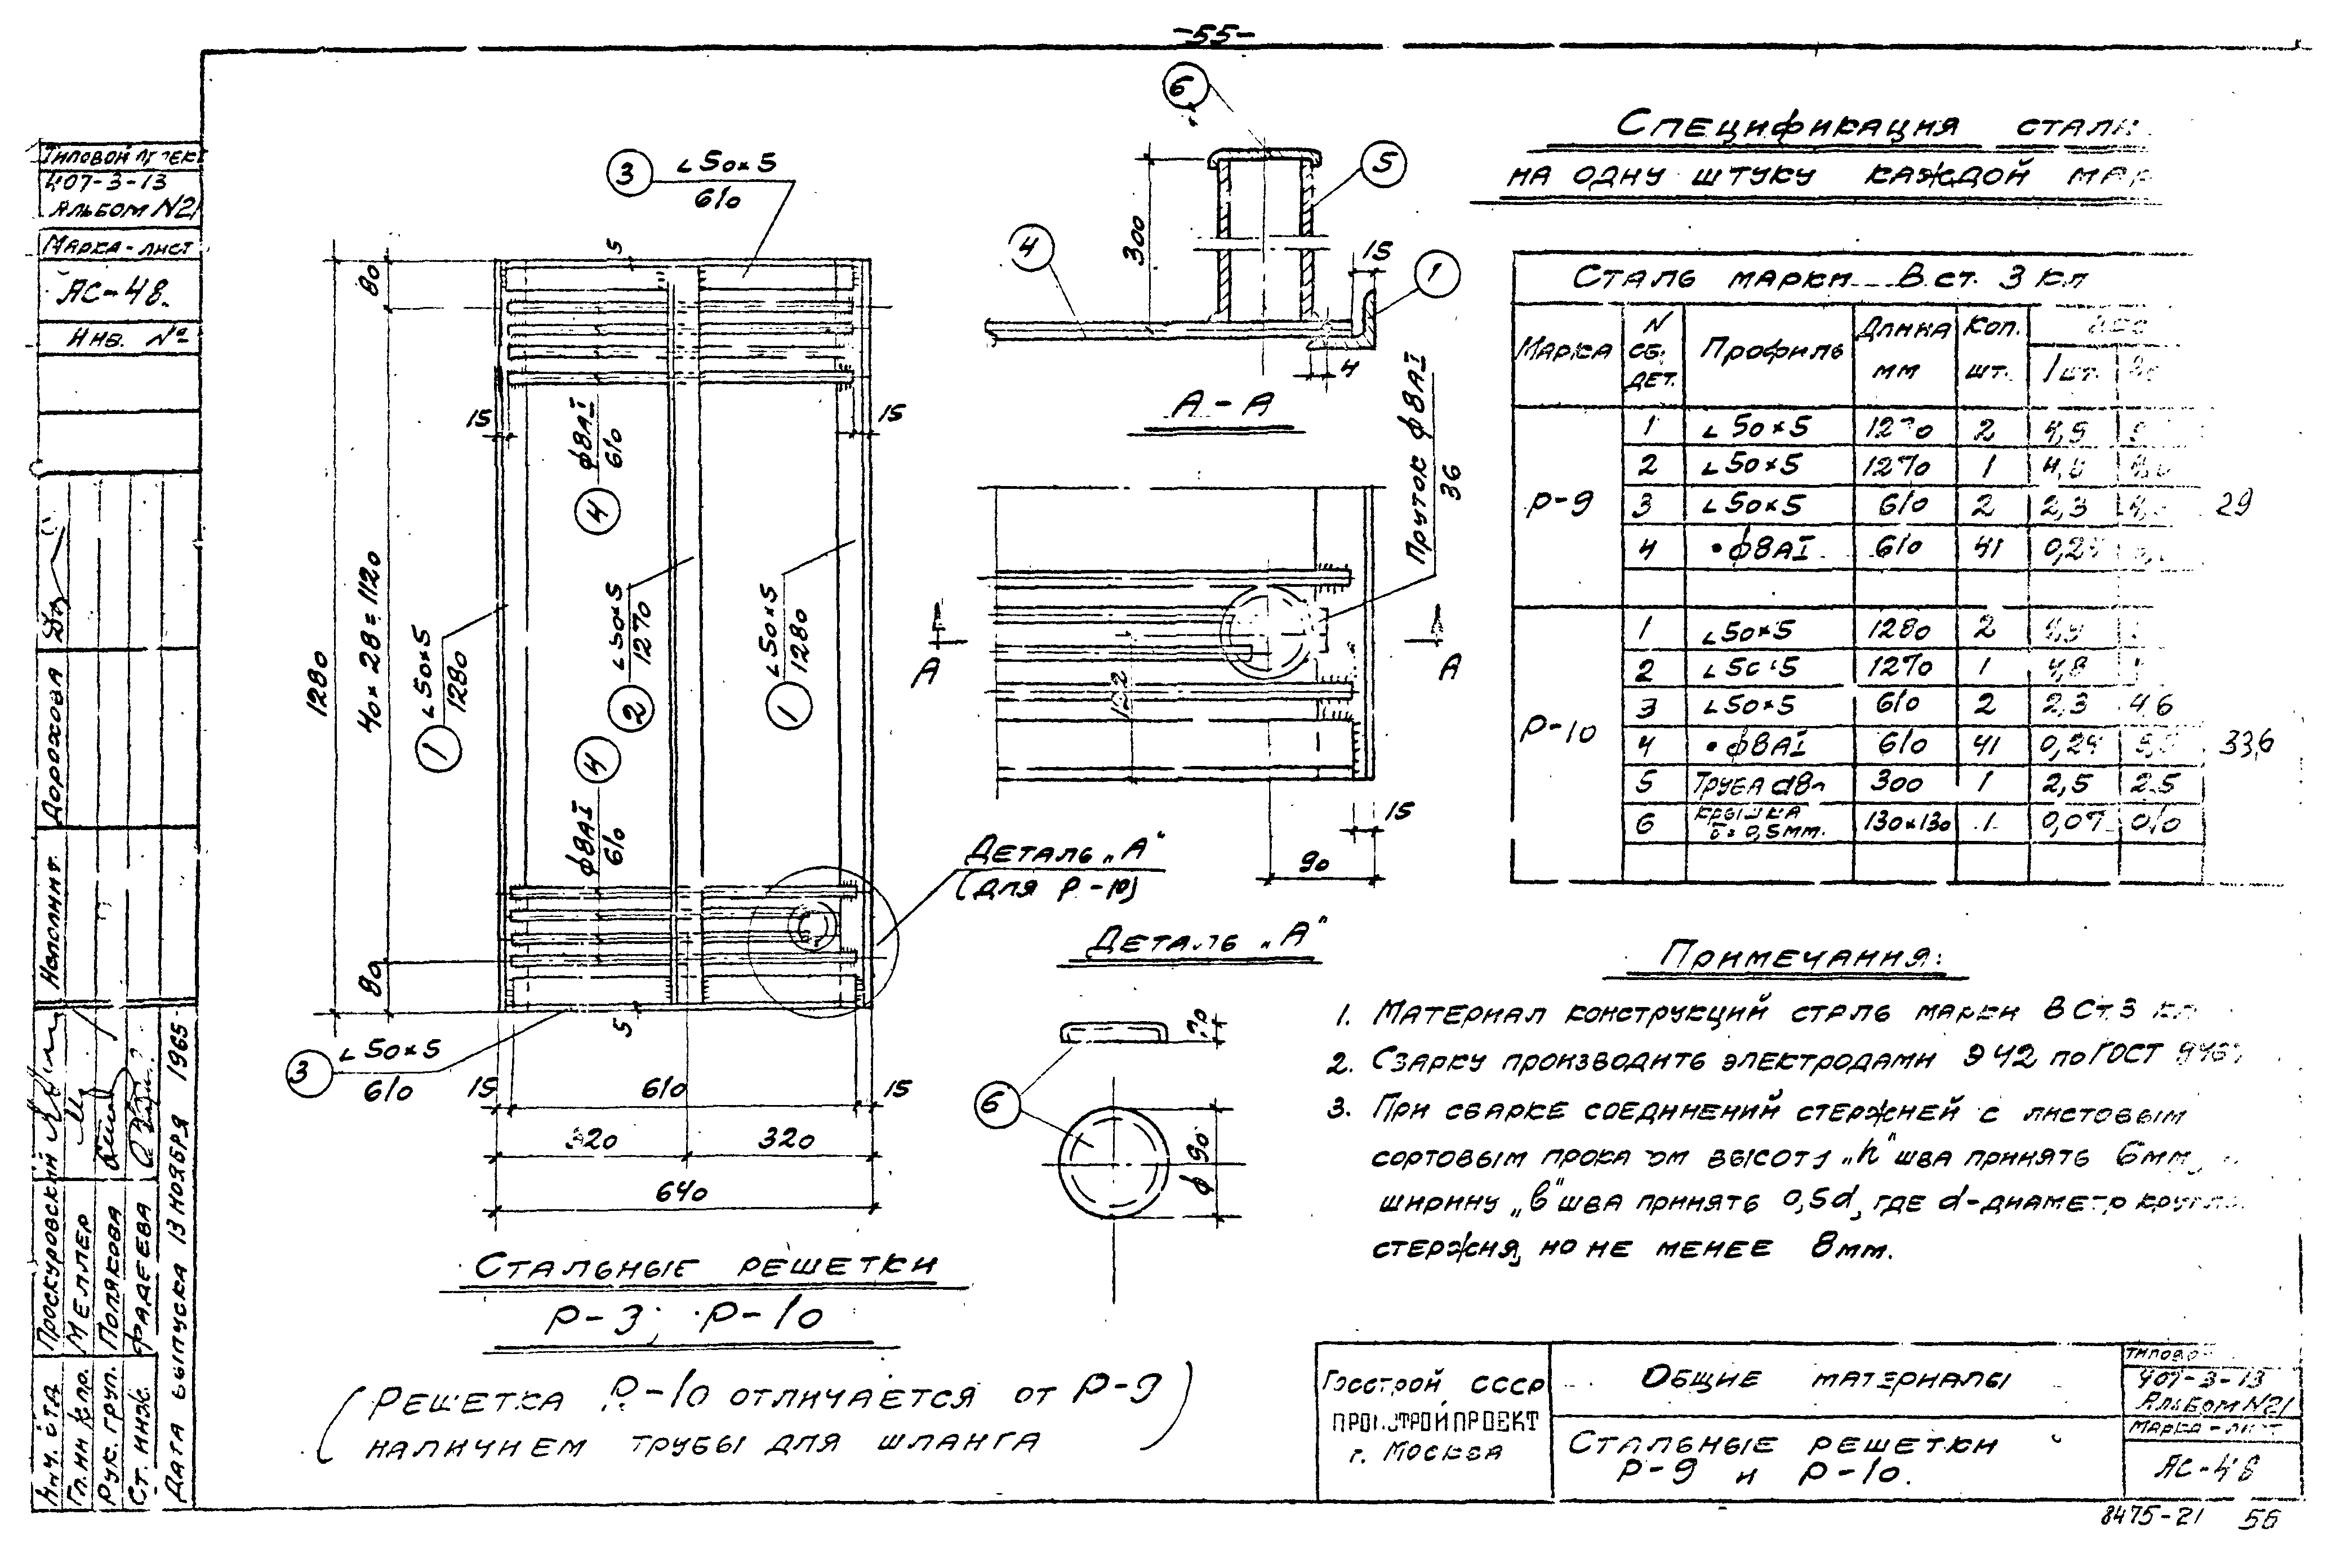 -55-
Типовой проект
407-3-13
Альбом №21
Марка-лист
АС-48.
Инв. №
Исполнит. Дорохова
Проскуровский
Гл. инж. пр. Меллер
Рук. груп. Полякова
Ст. инж. Фадеева
Дата выпуска 13 ноября 1965
3 ∟50×5
610
80
5
1280
40×28=1120
80
15
15
4 φ8АI
610
1 ∟50×5
1280
2 ∟50×5
1270
1 ∟50×5
1280
4 φ8АI
610
3 ∟50×5
610
5
15
610
15
320
320
640
Деталь „А"
(для Р-10)
Стальные решетки
Р-9; Р-10
(Решетка Р-10 отличается от Р-9
наличием трубы для шланга)
6
5
4
1
300
15
4
А-А
Пруток φ8АI
36
А
А
122
15
90
Деталь „А"
6
φ90
Спецификация
на одну штуку каждой
Сталь марки В ст. 3 кп
Марка
N сб. дет.
Профиль
Длина мм
Кол. шт.
1 шт.
Р-9
1 ∟50×5 1270 2 4,9
2 ∟50×5 1270 1 4,8
3 ∟50×5 610 2 2,3
4 •φ8АI 610 41 0,24
29
Р-10
1 ∟50×5 1280 2 4,9
2 ∟50×5 1270 1 4,8
3 ∟50×5 610 2 2,3 4,6
4 •φ8АI 610 41 0,24
33,6
5 Труба 300 1 2,5 2,5
6 Крышка δ=0,5мм. 130×130 1 0,07
Примечания:
1. Материал конструкций сталь марки В Ст.3 кп
2. Сварку производить электродами Э42 по ГОСТ
3. При сварке соединений стержней с листовым
сортовым прокатом высоту „h" шва принять 6мм,
ширину „в" шва принять 0,5d, где d-диаметр
стержня, но не менее 8мм.
Госстрой СССР
Промстройпроект
г. Москва
Общие материалы
Стальные решетки
Р-9 и Р-10.
407-3-13
Альбом №21
Марка-лист
АС-48
8475-21 56